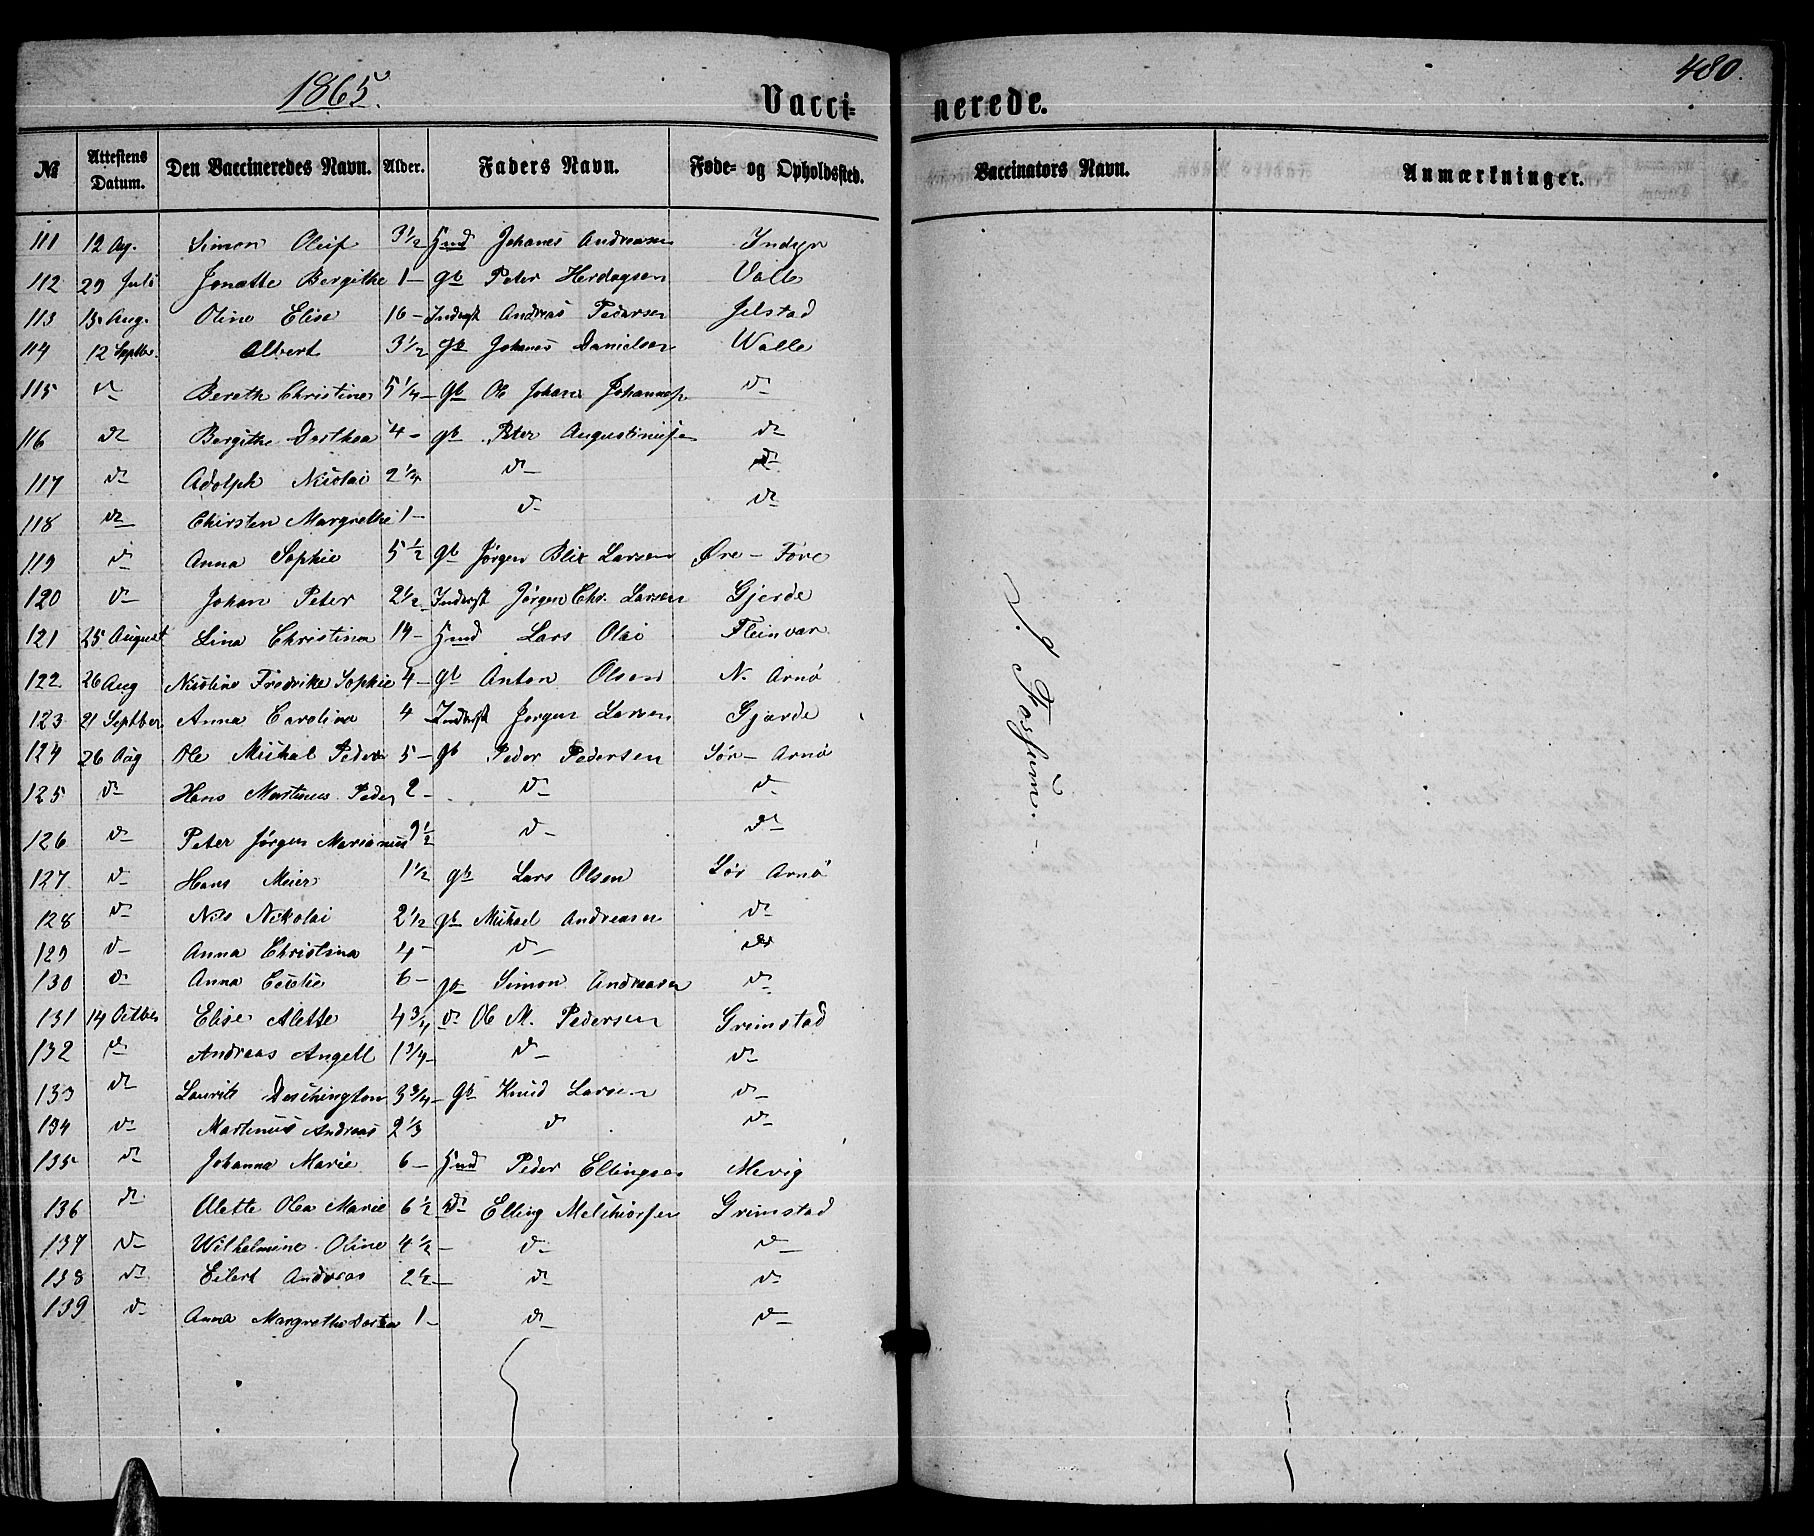 1865.
480.
Vacci- nerede.
№ Attestens Datum. Den Vaccineredes Navn. Alder. Faders Navn. Føde- og Opholdssted. Vaccinators Navn. Anmærkninger.
111 12 Aug. Simon Oluf 3½ Hmd Johanes Andreasen Indyr
112 29 Juli Jonette Bergithe 1 – gb Peter Herdagsen Valle
113 15 Aug. Oline Elise 16 – Inderst Andreas Pedersen Jelstad
114 12 Septbr. Albert 3½ gb Johanes Danielsen Walle
115 do Bereth Christine 5¼ – gb Ole Johan Johannes do
116 do Bergithe Dorthea 4 – gb Peter Augustinusen do
117 do Adolph Nicolai 2¼ do do
118 do Chirsten Margrethe 1 – do do
119 do Anna Sophie 5½ gb Jørgen Blix Larsen Øre – Fore
120 do Johan Peter 2½ Inderst Jørgen Chr. Larsen Gjerde
121 25 August Lina Christina 14 – Hmd Lars Olai Fleinvær
122 26 Aug Nicoline Fredrike Sophie 4 – gb Anton Olsen N. Arnø
123 21 Septber Anna Carolina 4 Inderst Jørgen Larsen Gjerde
124 26 Aug Ole Mickal Peder 5 – gb Peder Pedersen Sør – Arnø
125 do Hans Martinus Peder 2 – do do
126 do Peter Jørgen Marianus 9½ do do
127 do Hans Meier 1½ gb Lars Olsen Sør Arnø
128 do Nils Nikolai 2½ gb Mickael Andreasen do
129 do Anna Christina 4 – do do
130 do Anna Cecilie 6 – gb Simon Andreasen do
131 14 Octber Elise Alette 4¾ do Ole M. Pedersen Grimstad
132 do Andreas Angell 1¾ – do do
133 do Laurits Deschington 3¾ – gb Knud Larsen do
134 do Martinus Andreas 2⅓ do do
135 do Johanna Marie 6 – Hmd Peder Ellingsen Mevig
136 do Alette Olea Marie 6½ do Elling Melchiorsen Grimstad
137 do Wilhelmine Oline 4½ – do do
138 do Eilert Andreas 2½ – do do
139 do Anna Margrethe Dortea 1 – do do
J. Fosfum. –